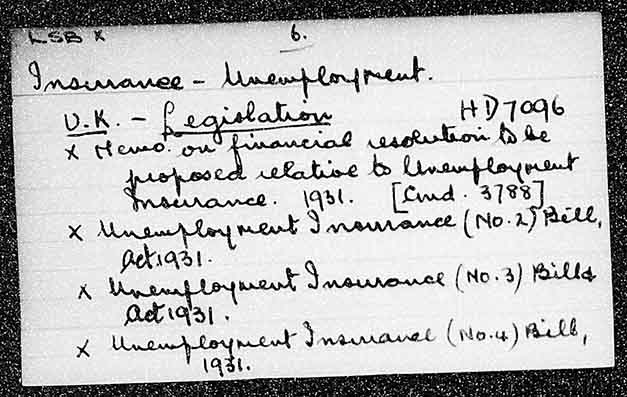 LSB x
6.
Insurance - Unemployment.
U.K. - Legislation HD7096
x Memo. on financial resolution to be
proposed relative to Unemployment
Insurance. 1931. [Cmd. 3788]
x Unemployment Insurance (No. 2) Bill,
Act 1931.
x Unemployment Insurance (No. 3) Bill &
Act 1931.
x Unemployment Insurance (No. 4) Bill,
1931.